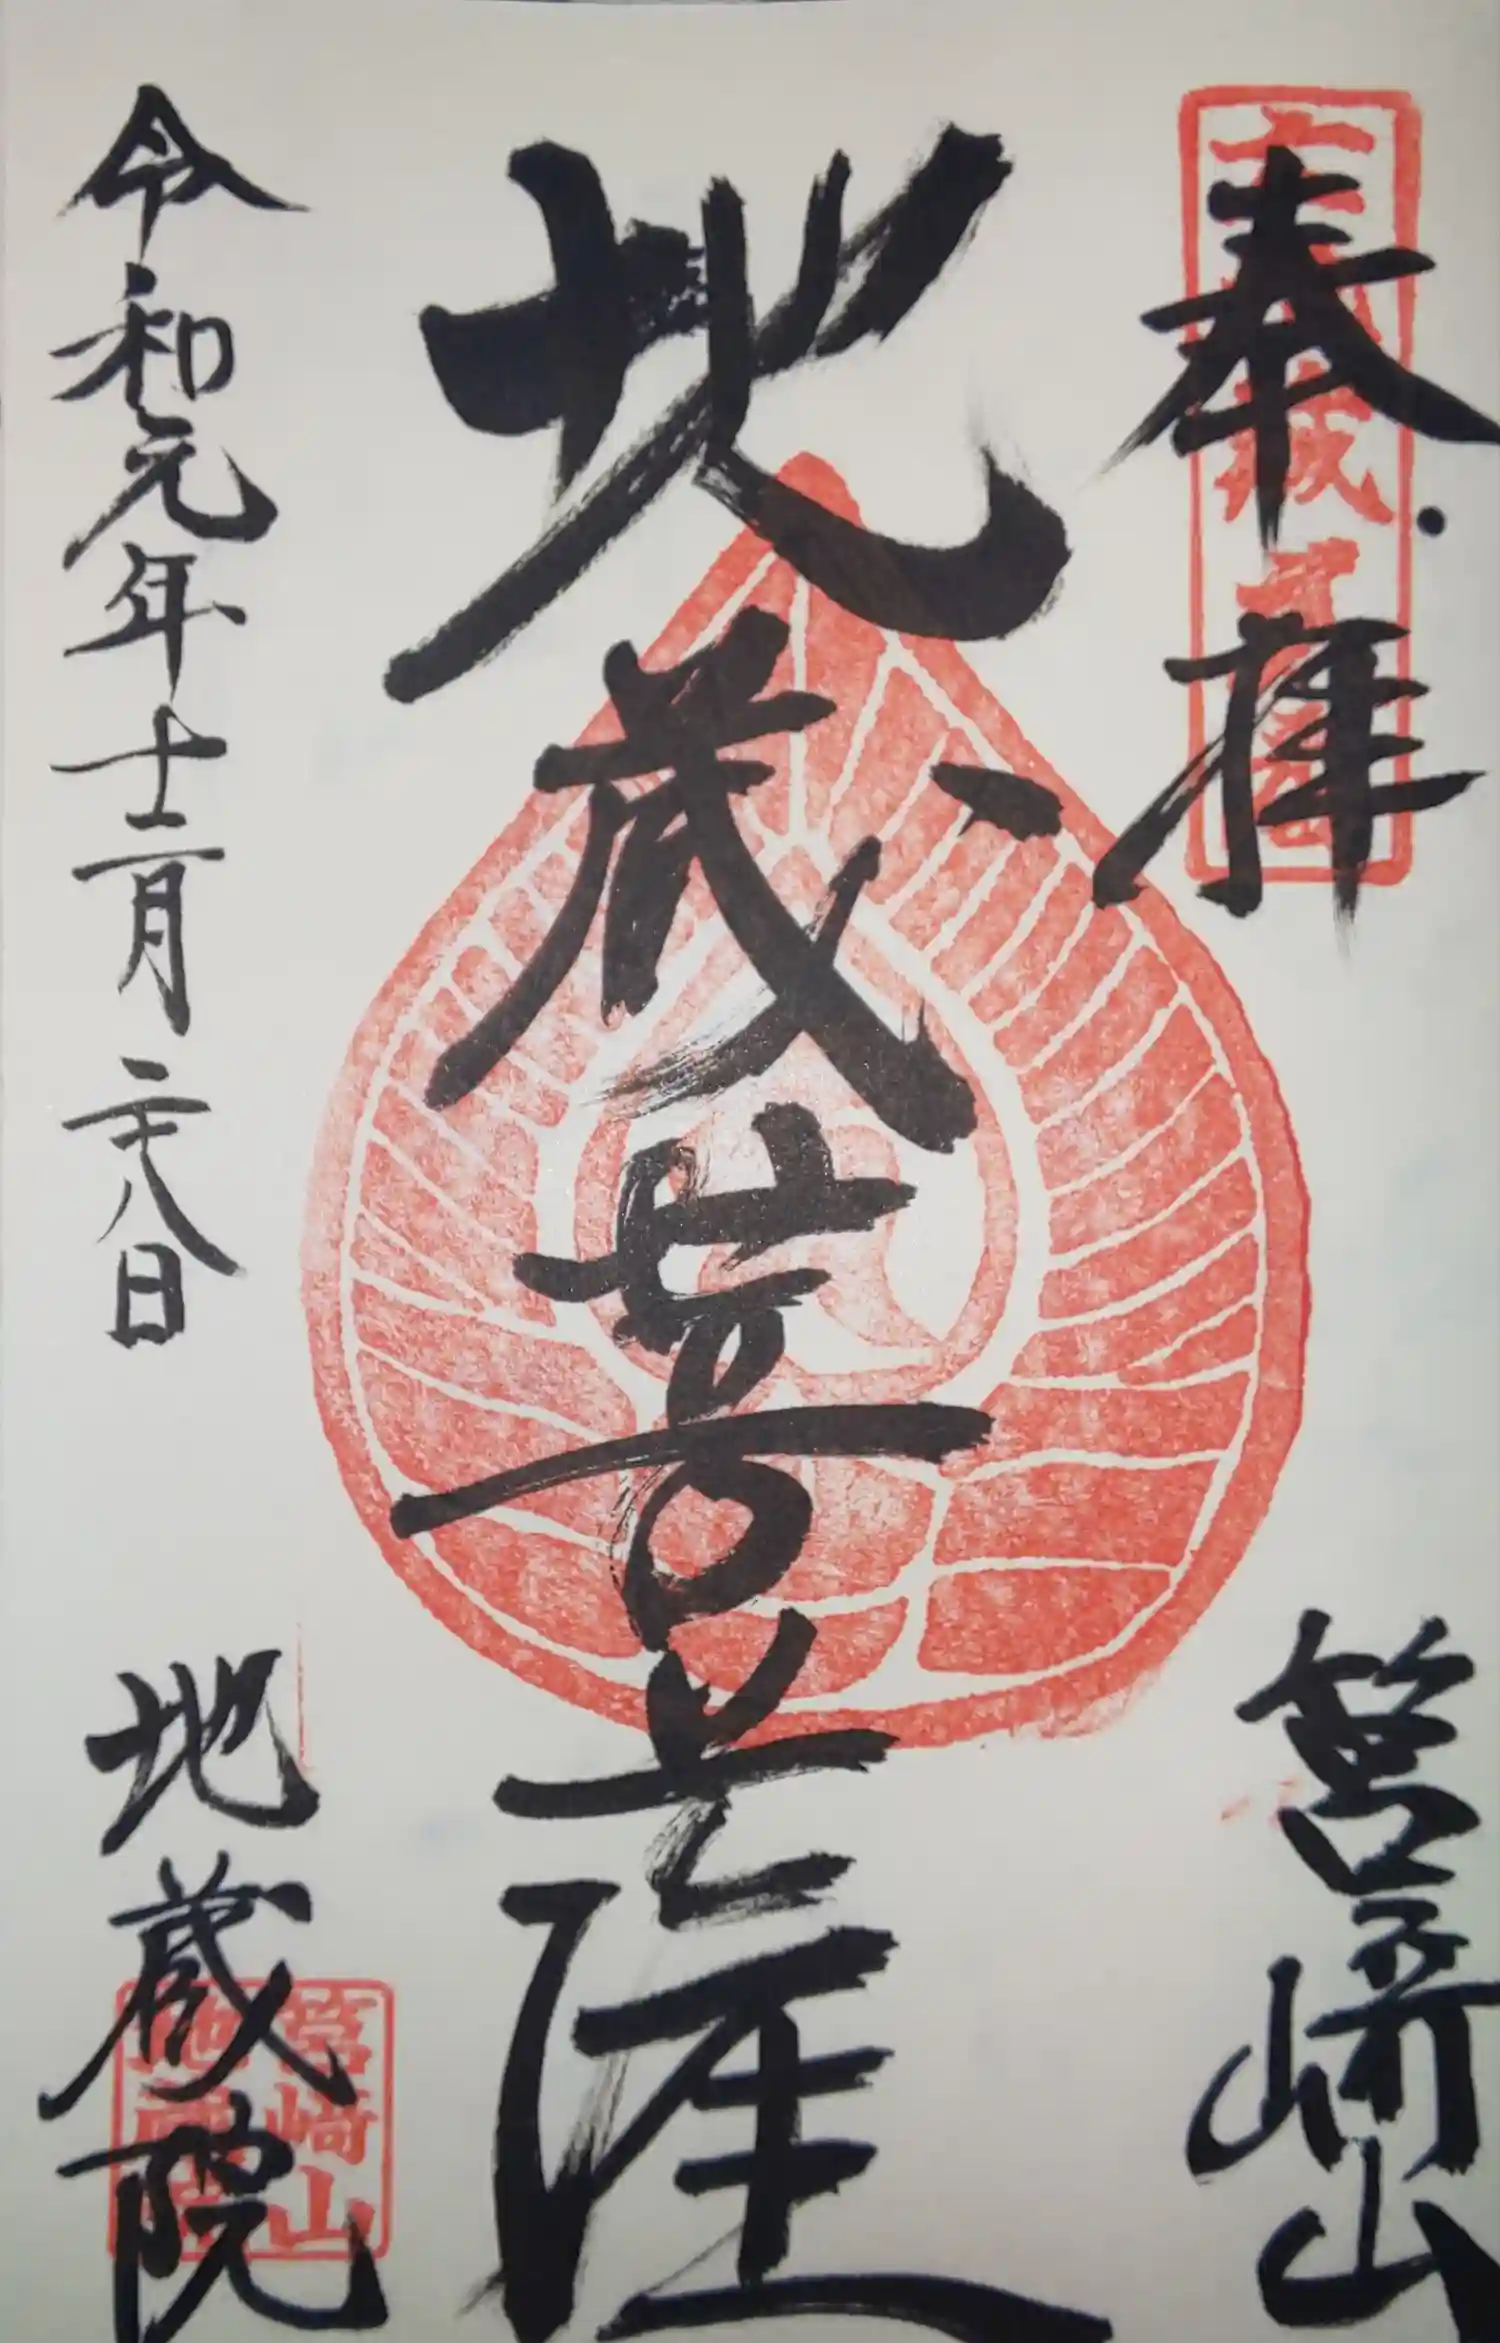 奉拝
筥崎山
地蔵菩薩
令和元年十二月二十八日
地蔵院
筥崎山
地蔵院